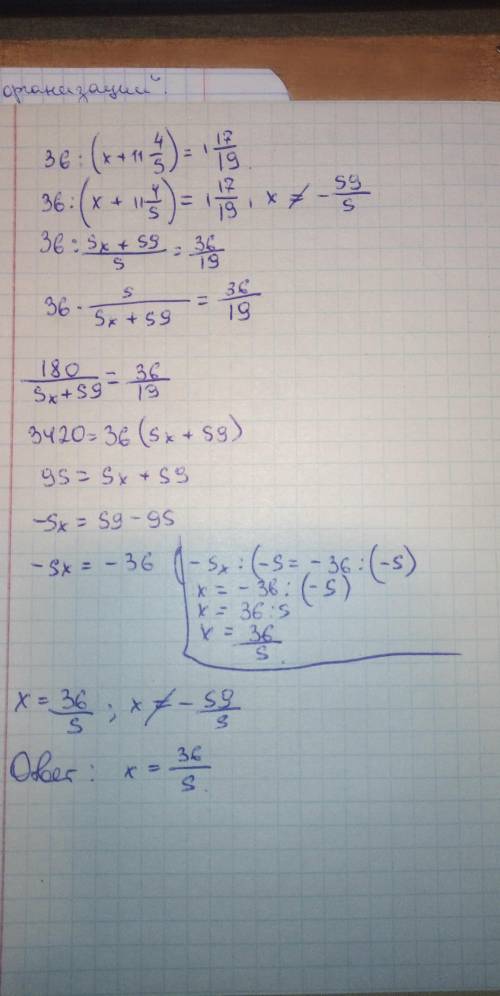 организаций".
36 : (x + 11 4/5) = 1 17/19
36 : (x + 11 4/5) = 1 17/19, x ≠ - 59/5
36 : 5x + 59/5 = 36/19
36 · 5/5x + 59 = 36/19
180/5x + 59 = 36/19
3420 = 36 (5x + 59)
95 = 5x + 59
-5x = 59 - 95
-5x = -36
-5x : (-5 = -36 : (-5)
x = -36 : (-5)
x = 36 : 5
x = 36/5.
x = 36/5 ; x ≠ - 59/5
Ответ: x = 36/5.